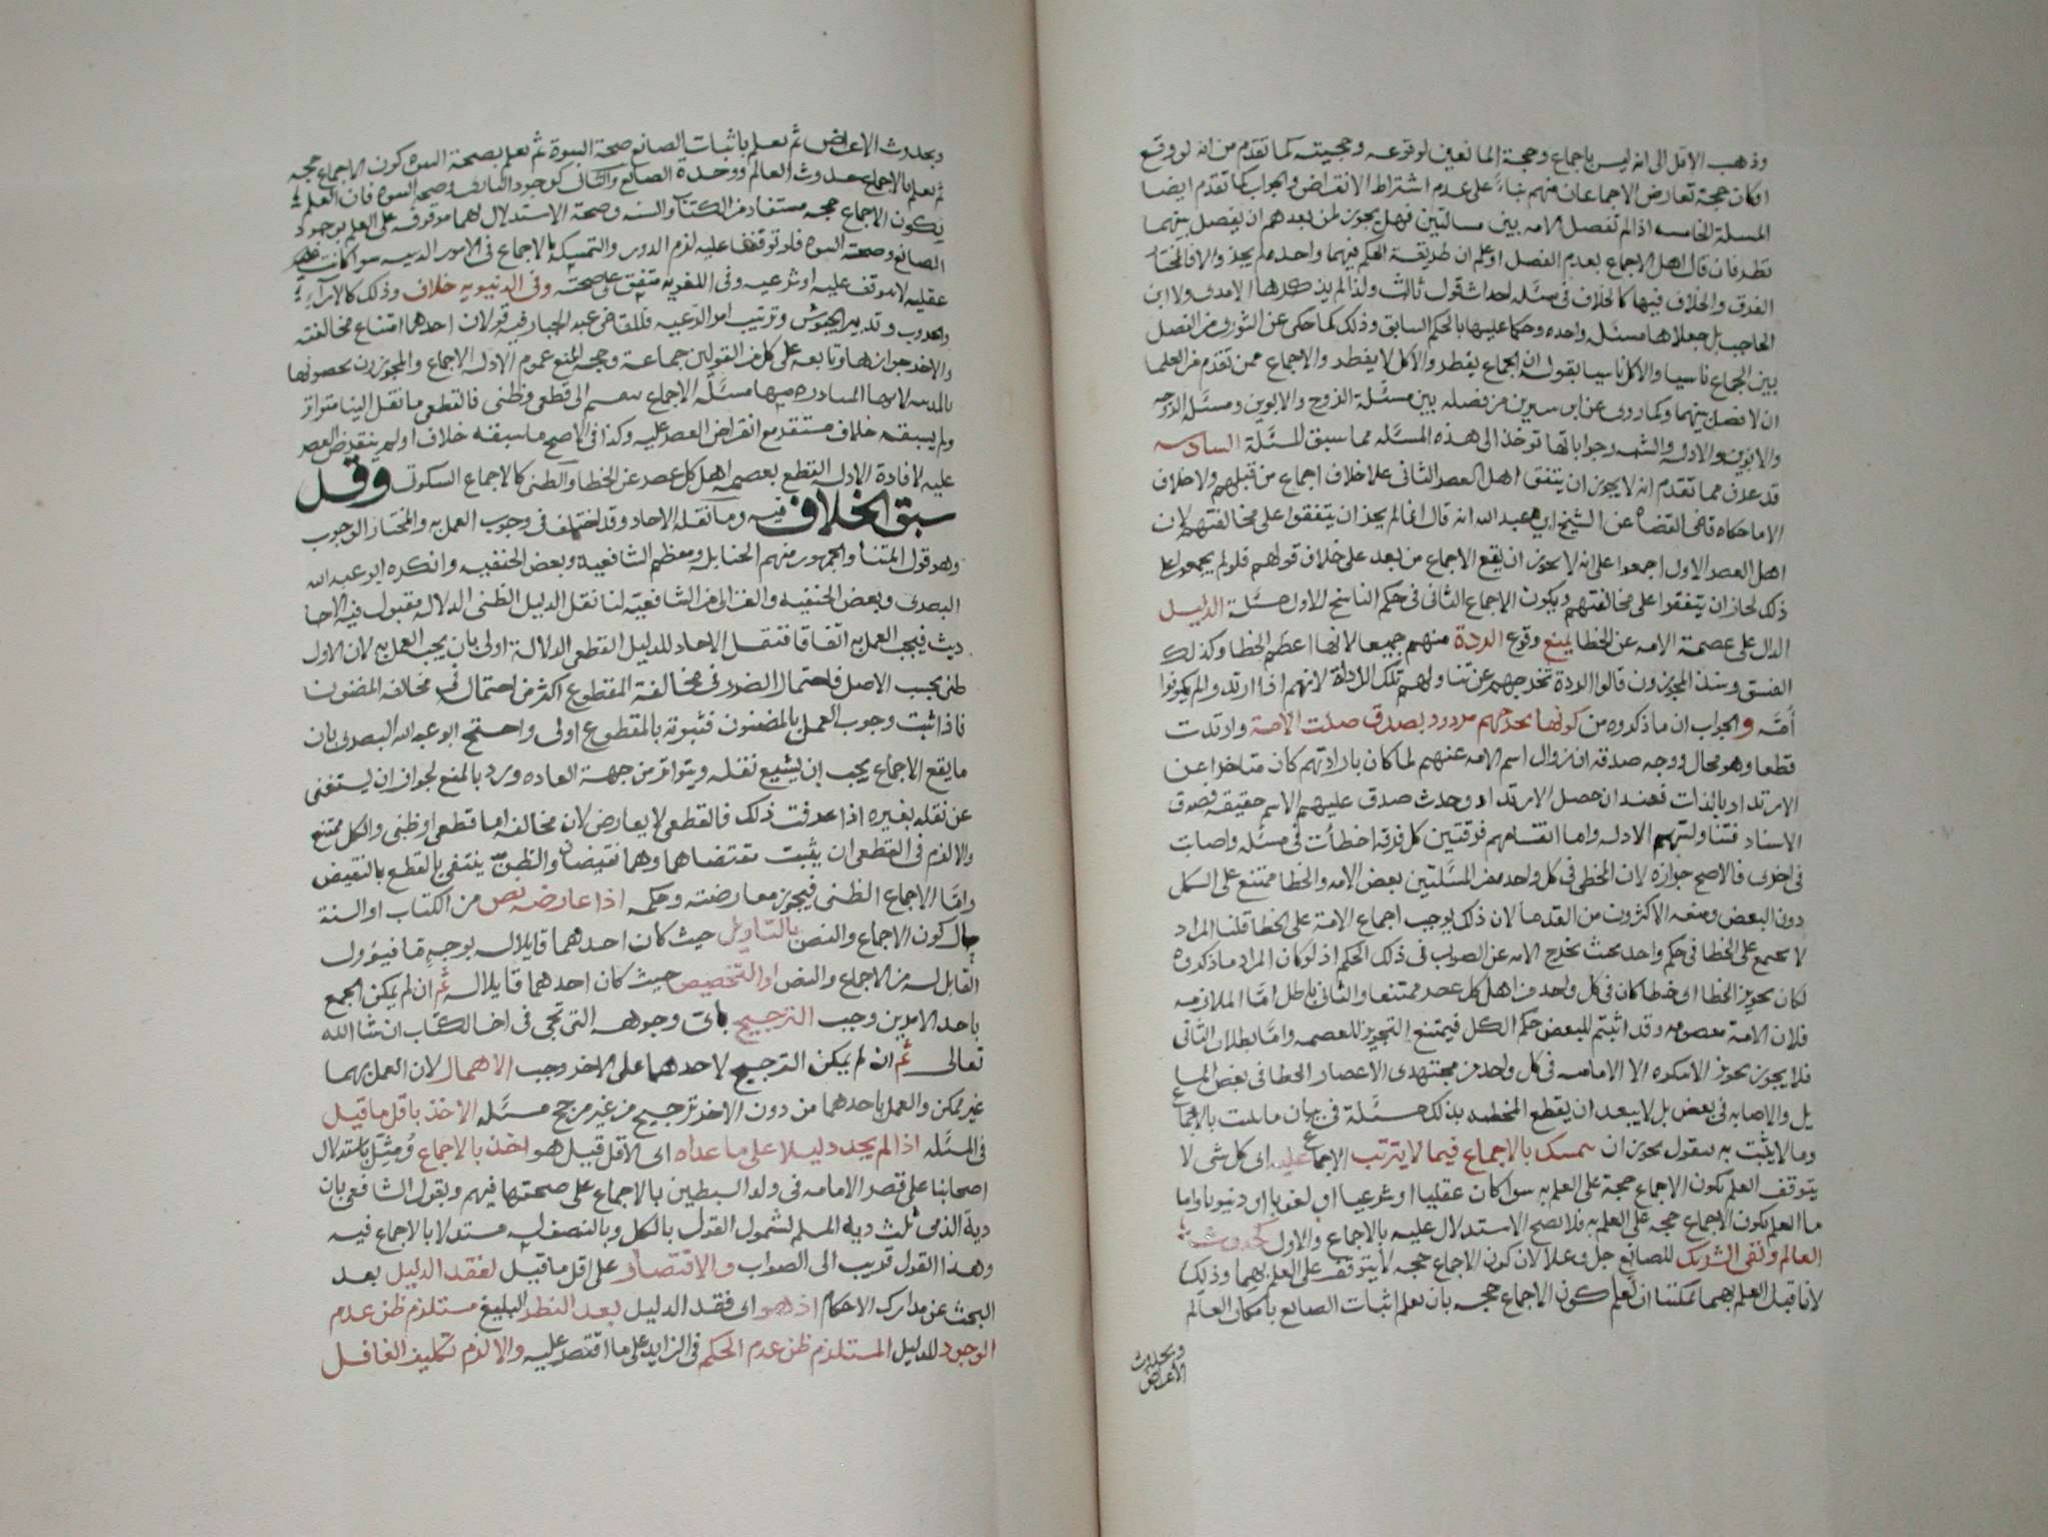 وذهب الاقل الى انه ليس باجماع وحجة المانعين لوقوعه وحجيته كما تقدم من انه لو وقع
لكان حجة تعارض الاجماعان منهم بناءً على عدم اشتراط الانقراض والجواب كما تقدم ايضا
المسلة الخامسه اذا لم تفصل الامه بين مسالتين فهل يجوز لمن بعدهم ان يفصل بينهما
نظر فان قال اهل الاجماع بعدم الفصل او علم ان طريقة الحكم فيهما واحده لم يجز والا فالمختار
الفرق والخلاف فيها كالخلاف في مسئله احداث قول ثالث ولذا لم يذكرها الامدى ولا ابن
الحاجب بل جعلاها مسئله واحده وحكما عليها بالحكم السابق وذلك كما حكى عن الثورى من الفصل
بين الجماع ناسيا والاكل ناسيا بقوله ان الجماع يفطر والاكل لا يفطر والاجماع ممن تقدم من العلما
ان لا فصل بينهما وكما روى عن ابن سيرين من فصله بين مسئلة الزوج والابوين ومسئلة الزوجه
والابوين والادله والشبه وجواباتها توخذ الى هذه المسئله مما سبق المسئلة السادسه
قد عرف مما تقدم انه لا يجوز ان يتفق اهل العصر الثانى على خلاف اجماع من قبلهم ولا خلاف
الا ما حكاه قاضى القضاه عن الشيخ ابى عبد الله انه قال انما لم يجز ان يتفقوا على مخالفتهم لان
اهل العصر الاول اجمعوا على انه لا يجوز ان يقع الاجماع من بعد على خلاف قولهم فلو لم يجمعوا على
ذلك لجاز ان يتفقوا على مخالفتهم ويكون الاجماع الثانى فى حكم الناسخ للاول مسئلة الدليل
الدال على عصمة الامه عن الخطا يمنع وقوع الردة منهم جميعا لانها اعظم الخطا وكذلك
الفسق وشذ المجوزون قالوا الردة تخرجهم عن تناولهم تلك الادلة لانهم اذا ارتدوا لم يكونوا
أمَّه والجواب ان ما ذكروه من كونها تخرجهم مردود بصدق ضلت الامة وارتدت
قطعا وهو محال ووجه صدقه ان زوال اسم الامه عنهم لما كان بارادتهم كان متاخرا عن
الارتداد بالذات فعند ان حصل الارتداد وحدث صدق عليهم الاسم حقيقه فصدق
الاسناد فتناولتهم الادله واما انقسامهم فرقتين كل فرقه اخطأت فى مسئله واصابت
فى اخرى فالاصح جوازه لان المخطى فى كل واحد من المسئلتين بعض الامه والخطا ممتنع على الكل
دون البعض ومنعه الاكثرون من القدما لان ذلك يوجب اجماع الامة على الخطا قلنا المراد
لا تجتمع على الخطا فى حكم واحد بحث تخرج الامه عن الصواب فى ذلك الحكم اذ لو كان المراد ما ذكروه
لكان تجويز الخطا اى خطا كان فى كل واحد من اهل كل عصر ممتنعا والثانى باطل امَّا الملازمه
فلان الامة معصومه وقد اثبتم للبعض حكم الكل فيمتنع التجويز للعصمه وامَّا بطلان الثانى
فلا يجوز تجوز الا الاماميه فى كل واحد من مجتهدى الاعصار الخطا فى بعض المسا
يل والاصابه فى بعض بل لا يبعد ان يقطع المخطيه بذلك مسئلة فى بيان ما يثبت بالاجماع
وما لا يثبت به فنقول يجوز ان يتمسك بالاجماع فيما لا يترتب الاجماع عليه اى كل شى لا
يتوقف العلم بكون الاجماع حجة على العلم به سوا كان عقليا او شرعيا او لغويا او دنيويا واما
ما العلم بكون الاجماع حجه على العلم به فلا يصح الاستدلال عليه بالاجماع والاول كحدوث
العالم ونفى الشريك للصانع جل وعلا لان كون الاجماع حجه لا يتوقف على العلم بهما وذلك
لانا قبل العلم بهما يمكننا ان نعلم كون الاجماع حجه بان نعلم اثبات الصانع بامكان العالم
وبحدوث
الاعراض
وبحدوث الاعراض ثم نعلم باثبات الصانع صحة النبوة ثم نعلم بصحة النبوه كون الاجماع حجه
ثم نعلم بالاجماع حدوث العالم ووحدة الصانع والثانى كوجود البارى وصحه النبوه فان العلم
بكون الاجماع حجه مستفاد من الكتاب والسنه وصحة الاستدلال بهما موقوفه على العلم بوجود
الصانع وصحة النبوه فلو توقفتا عليه لزم الدور والتمسك بالاجماع فى الامور الدينيه سوا كانت
عقليه لا تتوقف عليه او شرعيه وفى اللغويه متفق على صحته وفى الدنيويه خلاف وذلك كالاراء
والحروب وتدبير الجيوش وترتيب امر الرعيه فللقاضى عبد الجبار فيه قولان احدهما امتناع مخالفته
والاخر جوازها وتابعه على كل من القولين جماعة وحجه المنع عموم الادله الاجماع والمجوزون يخصونها
بالدينيه لانها المتبادره منها مسئلة الاجماع ينقسم الى قطعى وظنى فالقطعى ما نقل الينا متواترا
ولم يسبقه خلاف مستقر مع انقراض العصر عليه وكذا فى الاصح ما سبقه خلاف او لم ينقرض العصر
عليه لافادة الادله القطع بعصمه اهل كل عصر عن الخطا والظنى كالاجماع السكوتى وقد
سبق الخلاف فيه وما نقله الاحاد وقد اختلف فى وجوب العمل به والمختار الوجوب
وهو قول ائمتنا والجمهور منهم الحنابله ومعظم الشافعيه وبعض الحنفيه وانكره ابو عبد الله
البصرى وبعض الحنفيه والغزالى من الشافعيّه لنا نقل الدليل الظنى الدلاله مقبول فيه الاحا
ديث فيجب العمل به اتفاقا فنقل الاحاد للدليل القطعى الدلالة اولى بان يجب العمل به لان الاول
ظنى بحسب الاصل فاحتمال الضرر فى مخالفة المقطوع اكثر من احتماله فى مخالفه المضنون
فاذا ثبت وجوب العمل بالمضنون فثبوته بالمقطوع اولى واحتج ابو عبد الله البصرى بان
ما يقع الاجماع يجب ان يشيع نقله ويتواتر من جهة العاده ورد بالمنع لجواز ان يستغنى
عن نقله بغيره اذا عرفت ذلك فالقطعى لا يعارض لان مخالفه اما قطعى او ظنى والكل ممتنع
والا لزم فى القطعى ان يثبت مقتضاهما وهما نقيضان والظن ينتفى بالقطع بالنقيض
وامّا الاجماع الظنى فيجوز معارضته وحكمه اذا عارضه نص من الكتاب او السنة
حال كون الاجماع والنص بالتاويل حيث كان احدهما قابلا له بوجهٍ ما فيئول
القابل له من الاجماع والنص او التخصيص حيث كان احدهما قابلا له ثم ان لم يمكن الجمع
باحد الامرين وجب الترجيح باى وجوهه التى تجى فى اخر الكتاب ان شا الله
تعالى ثم ان لم يمكن الترجيح لاحدهما على الاخر وجب الاهمال لان العمل بهما
غير ممكن والعمل باحدهما من دون الاخر ترجيح من غير مرجح مسئله الاخذ باقل ما قيل
فى المسئله اذا لم يجد دليلا على ما عداه اى الاقل قيل هو اخذ بالاجماع ومُثِّل باستدلال
اصحابنا على قصر الامامه فى ولد السبطين بالاجماع على صحتها فيهم وبقول الشافعى بان
دية الذمى ثلث دية المسلم لشمول القول بالكل وبالنصف له مستدلا بالاجماع فيه
وهذا القول قريب الى الصواب والاقتصار على اقل ما قيل لفقد الدليل بعد
البحث عن مدارك الاحكام اذ هو اى فقد الدليل بعد النظر البليغ مستلزم ظن عدم
الوجود للدليل المستلزم ظن عدم الحكم فى الزايد على ما اقتصر عليه والا لزم تكليف الغافل